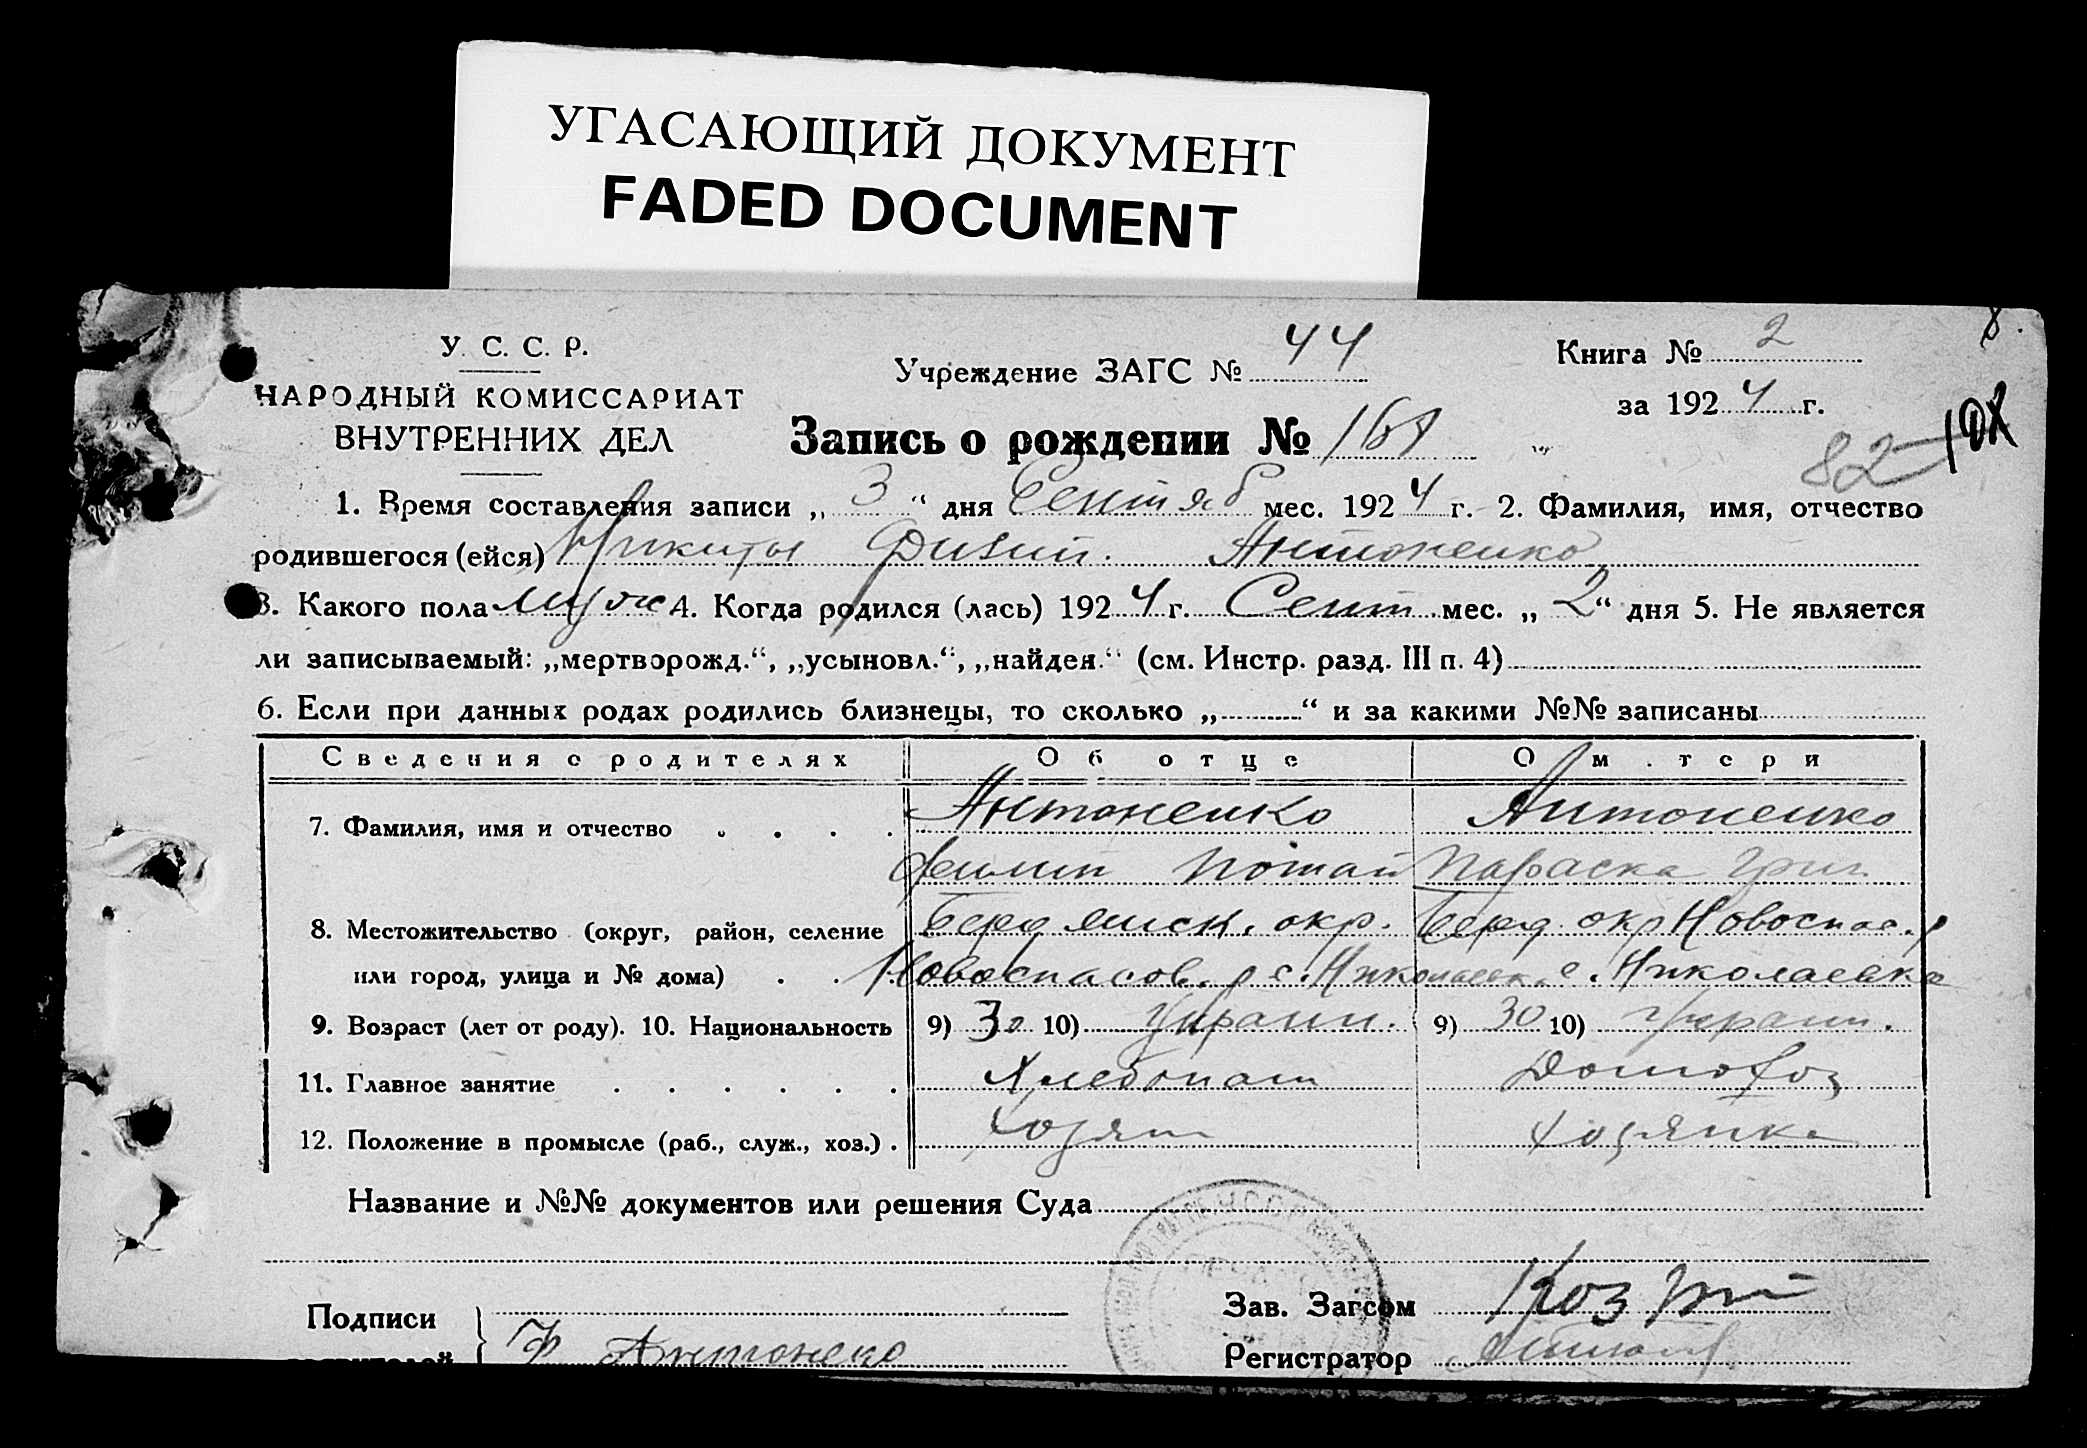 УГАСАЮЩИЙ ДОКУМЕНТ
FADED DOCUMENT
У. С. С. Р.
НАРОДНЫЙ КОМИССАРИАТ
ВНУТРЕННИХ ДЕЛ
Учреждение ЗАГС № 44
Книга № 2
за 1924 г.
8
Запись о рождении №
82
1. Время составления записи „ 3 “ дня Сентяб мес. 1924 г. 2. Фамилия, имя, отчество
родившегося (ейся) Никиты Антоненко
3. Какого пола муж 4. Когда родился (лась) 1924 г. Сент мес. „ 2 “ дня 5. Не является
ли записываемый: „мертворожд.“, „усыновл.“, „найден.“ (см. Инстр. разд. III п. 4)
6. Если при данных родах родились близнецы, то сколько „ “ и за какими №№ записаны
Сведения о родителях Об отце О м . тери
7. Фамилия, имя и отчество Антоненко Антоненко
Параска Григ.
8. Местожительство (округ, район, селение Бердянск. окр. Берд. окр Новоспас. р
или город, улица и № дома) Новоспасов. р с. Николаевк. с. Николаевка
9. Возраст (лет от роду). 10. Национальность 9) 30 10) Украин. 9) 30 10) Украин.
11. Главное занятие Хлебопаш Домохоз
12. Положение в промысле (раб., служ., хоз.) Хозяин Хозяйка
Название и №№ документов или решения Суда
Подписи
Зав. Загсом
Ф Антоненко
Регистратор